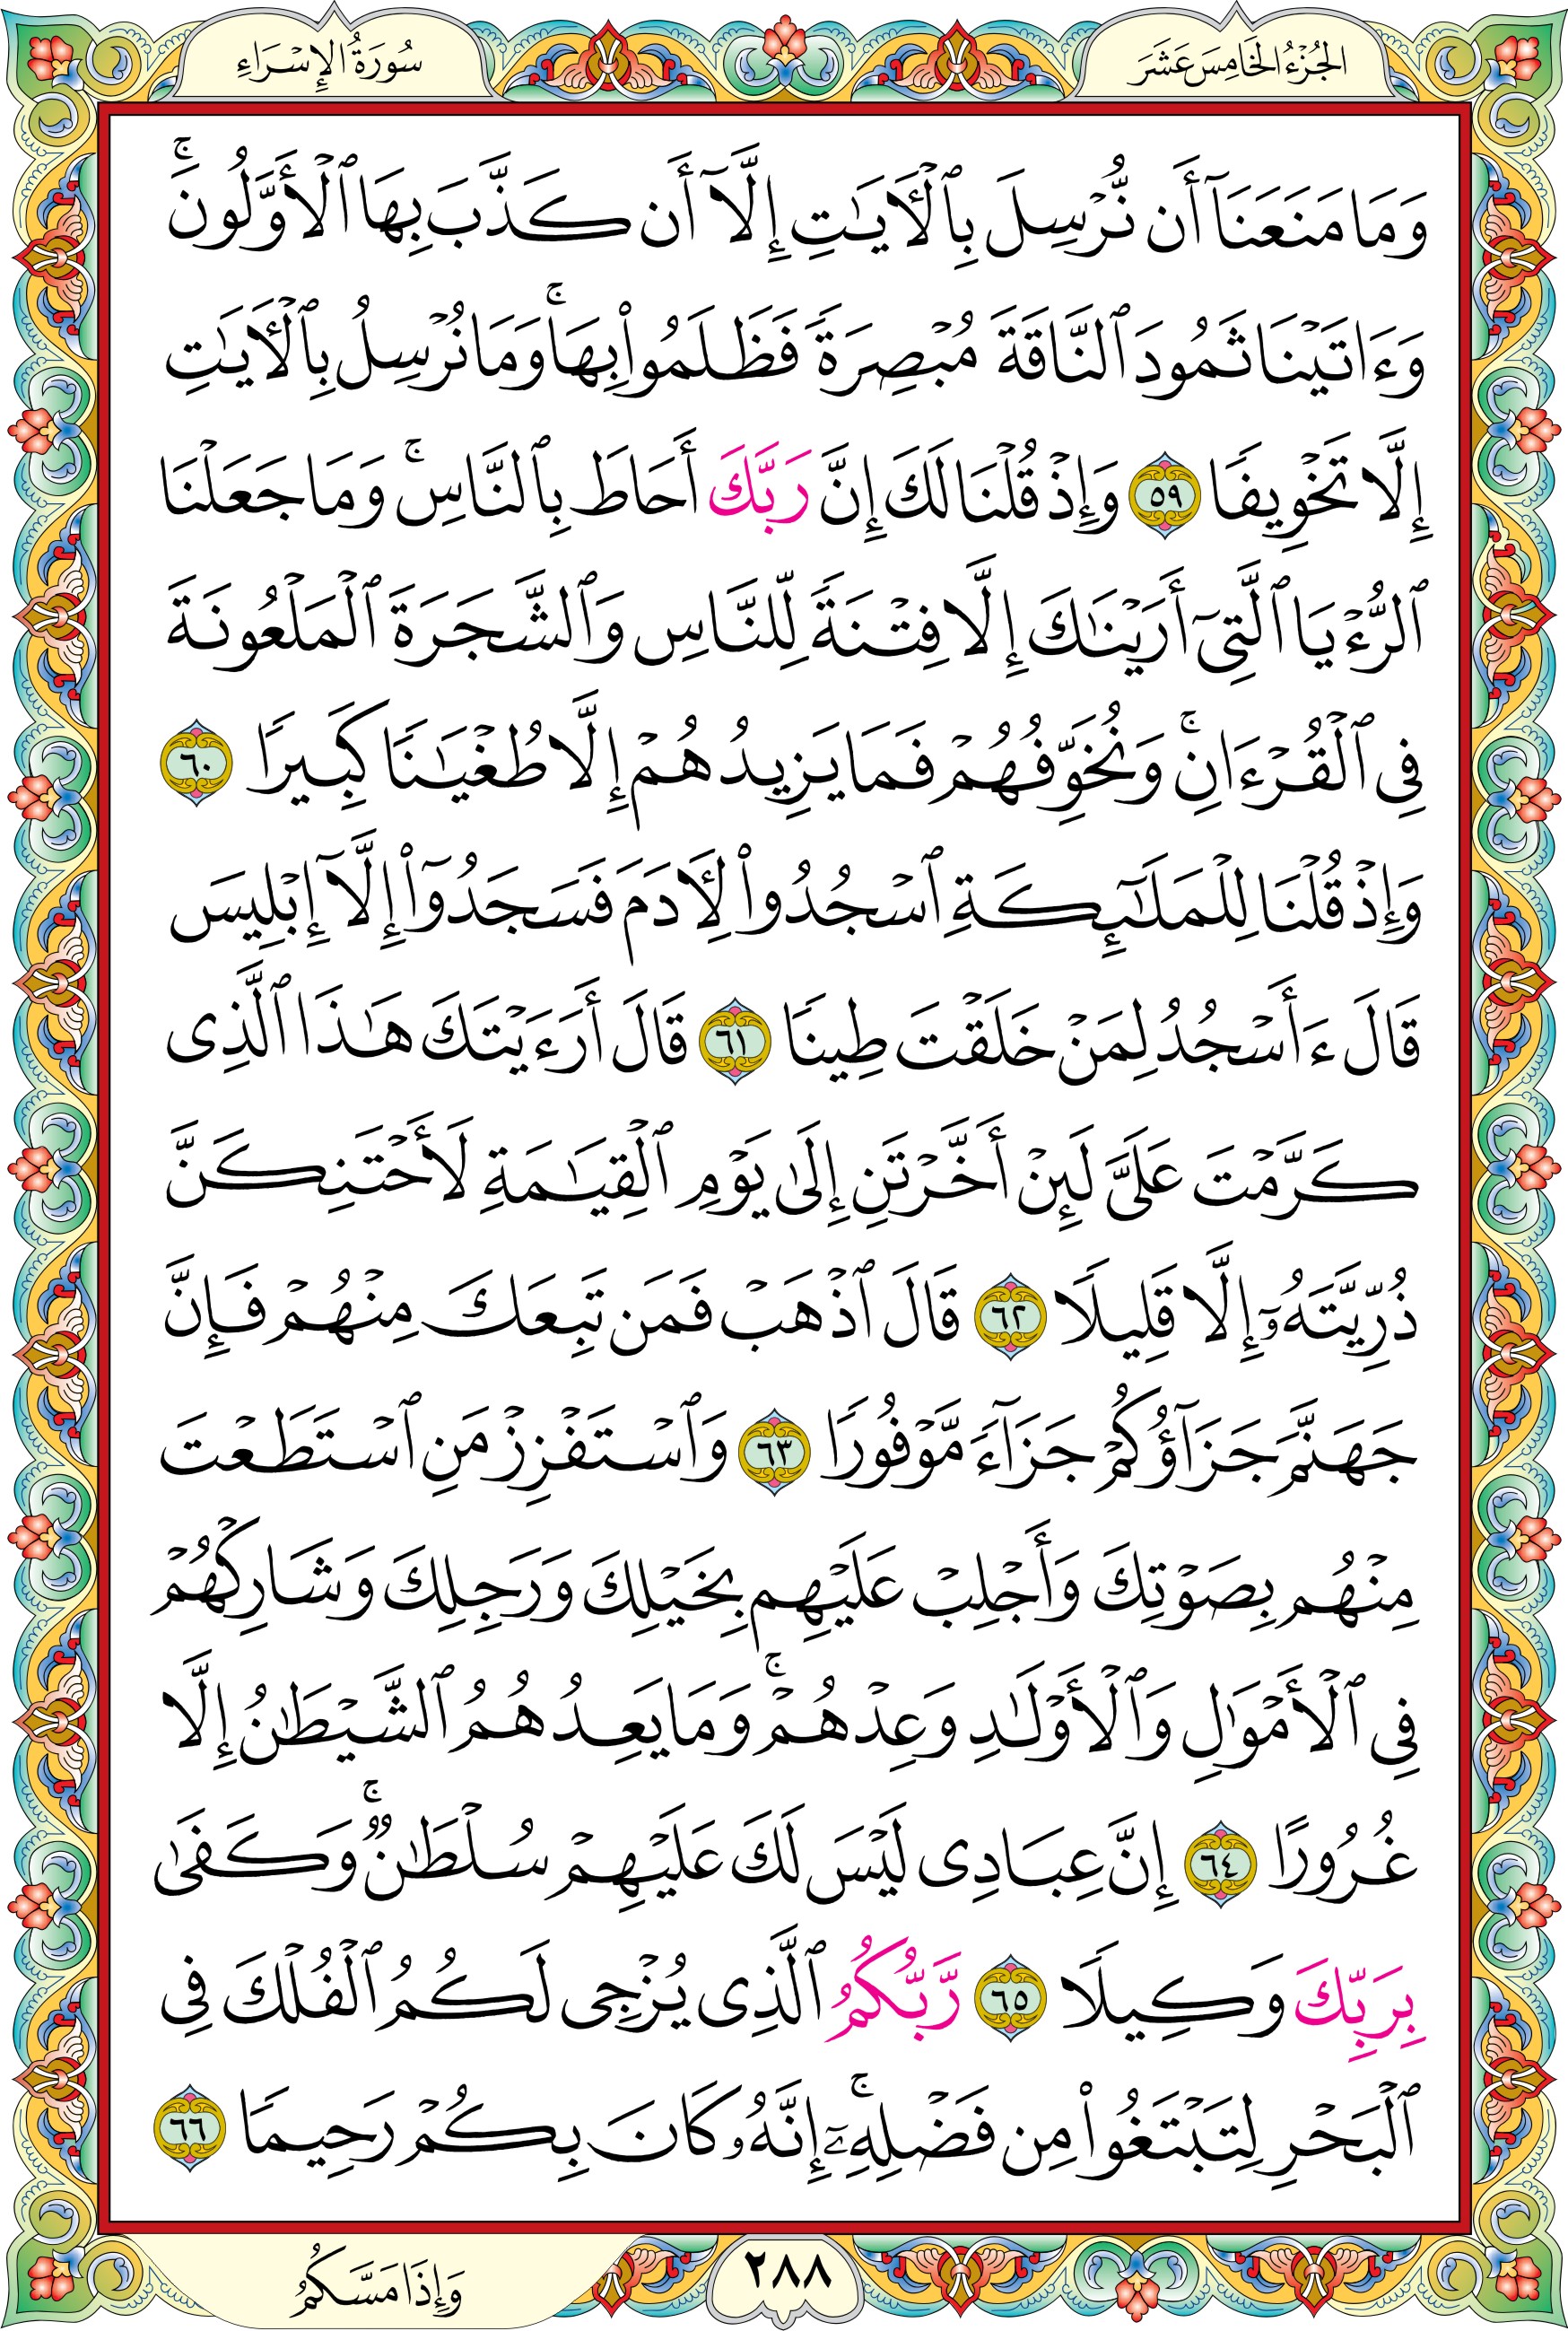 الجُزْءُ الخَامِسَ عَشَرَ
سُورَةُ الإِسْرَاءِ
وَمَا مَنَعَنَآ أَن نُّرْسِلَ بِٱلْأٓيَٰتِ إِلَّآ أَن كَذَّبَ بِهَا ٱلْأَوَّلُونَۚ
وَءَاتَيْنَا ثَمُودَ ٱلنَّاقَةَ مُبْصِرَةً فَظَلَمُوا۟ بِهَاۚ وَمَا نُرْسِلُ بِٱلْأٓيَٰتِ
إِلَّا تَخْوِيفًا ٥٩ وَإِذْ قُلْنَا لَكَ إِنَّ رَبَّكَ أَحَاطَ بِٱلنَّاسِۚ وَمَا جَعَلْنَا
ٱلرُّءْيَا ٱلَّتِىٓ أَرَيْنَٰكَ إِلَّا فِتْنَةً لِّلنَّاسِ وَٱلشَّجَرَةَ ٱلْمَلْعُونَةَ
فِى ٱلْقُرْءَانِۚ وَنُخَوِّفُهُمْ فَمَا يَزِيدُهُمْ إِلَّا طُغْيَٰنًا كَبِيرًا ٦٠
وَإِذْ قُلْنَا لِلْمَلَٰٓئِكَةِ ٱسْجُدُوا۟ لِأَدَمَ فَسَجَدُوٓا۟ إِلَّآ إِبْلِيسَ
قَالَ ءَأَسْجُدُ لِمَنْ خَلَقْتَ طِينًا ٦١ قَالَ أَرَءَيْتَكَ هَٰذَا ٱلَّذِى
كَرَّمْتَ عَلَىَّ لَئِنْ أَخَّرْتَنِ إِلَىٰ يَوْمِ ٱلْقِيَٰمَةِ لَأَحْتَنِكَنَّ
ذُرِّيَّتَهُۥٓ إِلَّا قَلِيلًا ٦٢ قَالَ ٱذْهَبْ فَمَن تَبِعَكَ مِنْهُمْ فَإِنَّ
جَهَنَّمَ جَزَآؤُكُمْ جَزَآءً مَّوْفُورًا ٦٣ وَٱسْتَفْزِزْ مَنِ ٱسْتَطَعْتَ
مِنْهُم بِصَوْتِكَ وَأَجْلِبْ عَلَيْهِم بِخَيْلِكَ وَرَجِلِكَ وَشَارِكْهُمْ
فِى ٱلْأَمْوَٰلِ وَٱلْأَوْلَٰدِ وَعِدْهُمْۚ وَمَا يَعِدُهُمُ ٱلشَّيْطَٰنُ إِلَّا
غُرُورًا ٦٤ إِنَّ عِبَادِى لَيْسَ لَكَ عَلَيْهِمْ سُلْطَٰنٌۚ وَكَفَىٰ
بِرَبِّكَ وَكِيلًا ٦٥ رَّبُّكُمُ ٱلَّذِى يُزْجِى لَكُمُ ٱلْفُلْكَ فِى
ٱلْبَحْرِ لِتَبْتَغُوا۟ مِن فَضْلِهِۦٓۚ إِنَّهُۥ كَانَ بِكُمْ رَحِيمًا ٦٦
٢٨٨
وَإِذَا مَسَّكُمُ